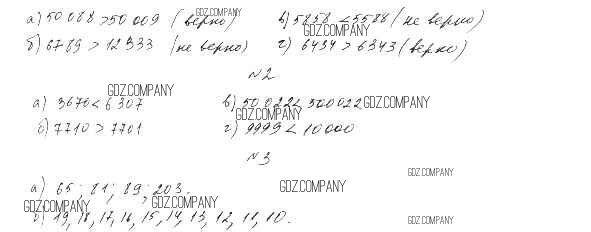 а) 50 088 > 50 009 (верно) в) 5858 < 5588 (не верно)
б) 6789 > 12 333 (не верно) г) 6434 > 6343 (верно)
№2
а) 3670 < 6 307 в) 50 022 < 500022
б) 7710 > 7701 г) 9999 < 10000
№3
а) 65; 81; 89; 203.
б) 19, 18, 17, 16, 15, 14, 13, 12, 11, 10.
GDZ.COMPANY
GDZ.COMPANY
GDZ.COMPANY
GDZ.COMPANY
GDZ.COMPANY
GDZ.COMPANY
GDZ.COMPANY
GDZ.COMPANY
GDZ.COMPANY
GDZ.COMPANY